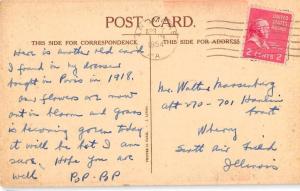 POST CARD.
THIS SIDE FOR CORRESPONDENCE
THIS SIDE FOR ADDRESS
1954
PA.
UNITED STATES POSTAGE
2 CENTS 2
Here is another old card
I found in my dresser
bought in Paris in 1918.
Our flowers are now
out in bloom and grass
is becoming green today
it will be hot I am
sure. Hope you are
well
BP-BP
Mr. Walter
apt 270-701
court
Wherry
Scott Air Field
Illinois